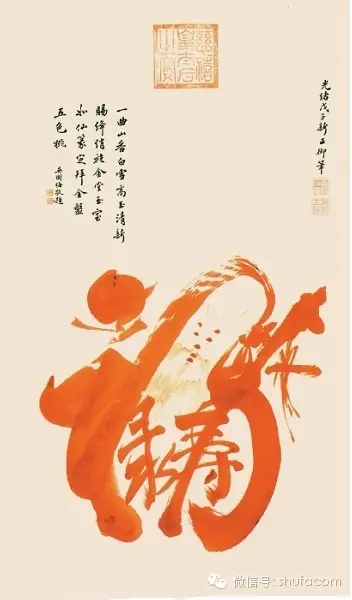 慈禧
皇太后
之寶
光緒戊子新正御筆
一曲山香白雪高玉清新
賜絳綃袍金堂玉室
如仙篆定拜金盤
五色桃
吳樹梅敬題
祿壽
微信号: shufacom